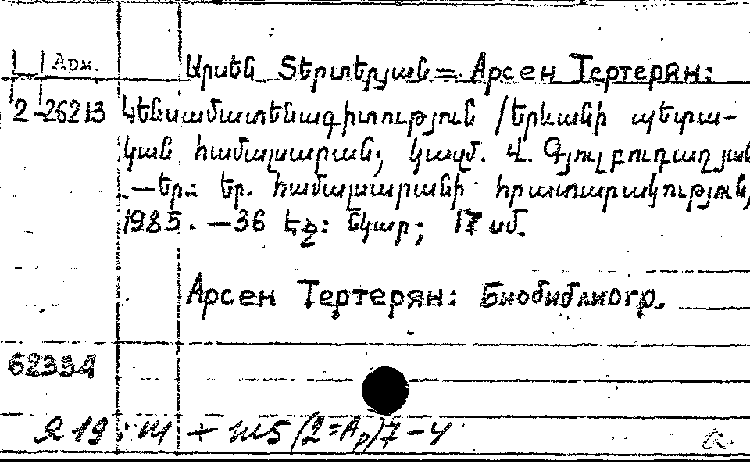 Арм.
Արսեն Տերտերյան = Арсен Тертерян:
2-26213 Կենսամատենագիտություն /Երևանի պետա-
կան համալսարան; կազմ. Վ. Գյուլբուդաղյան
.—Եր.: Եր. համալսարանի հրատարակություն,
1985. —36 էջ: նկար; 17 սմ.
Арсен Тертерян: Биобиблиогр.
62334
Я 19:Ш + Ш5 (2=Ар)7-4